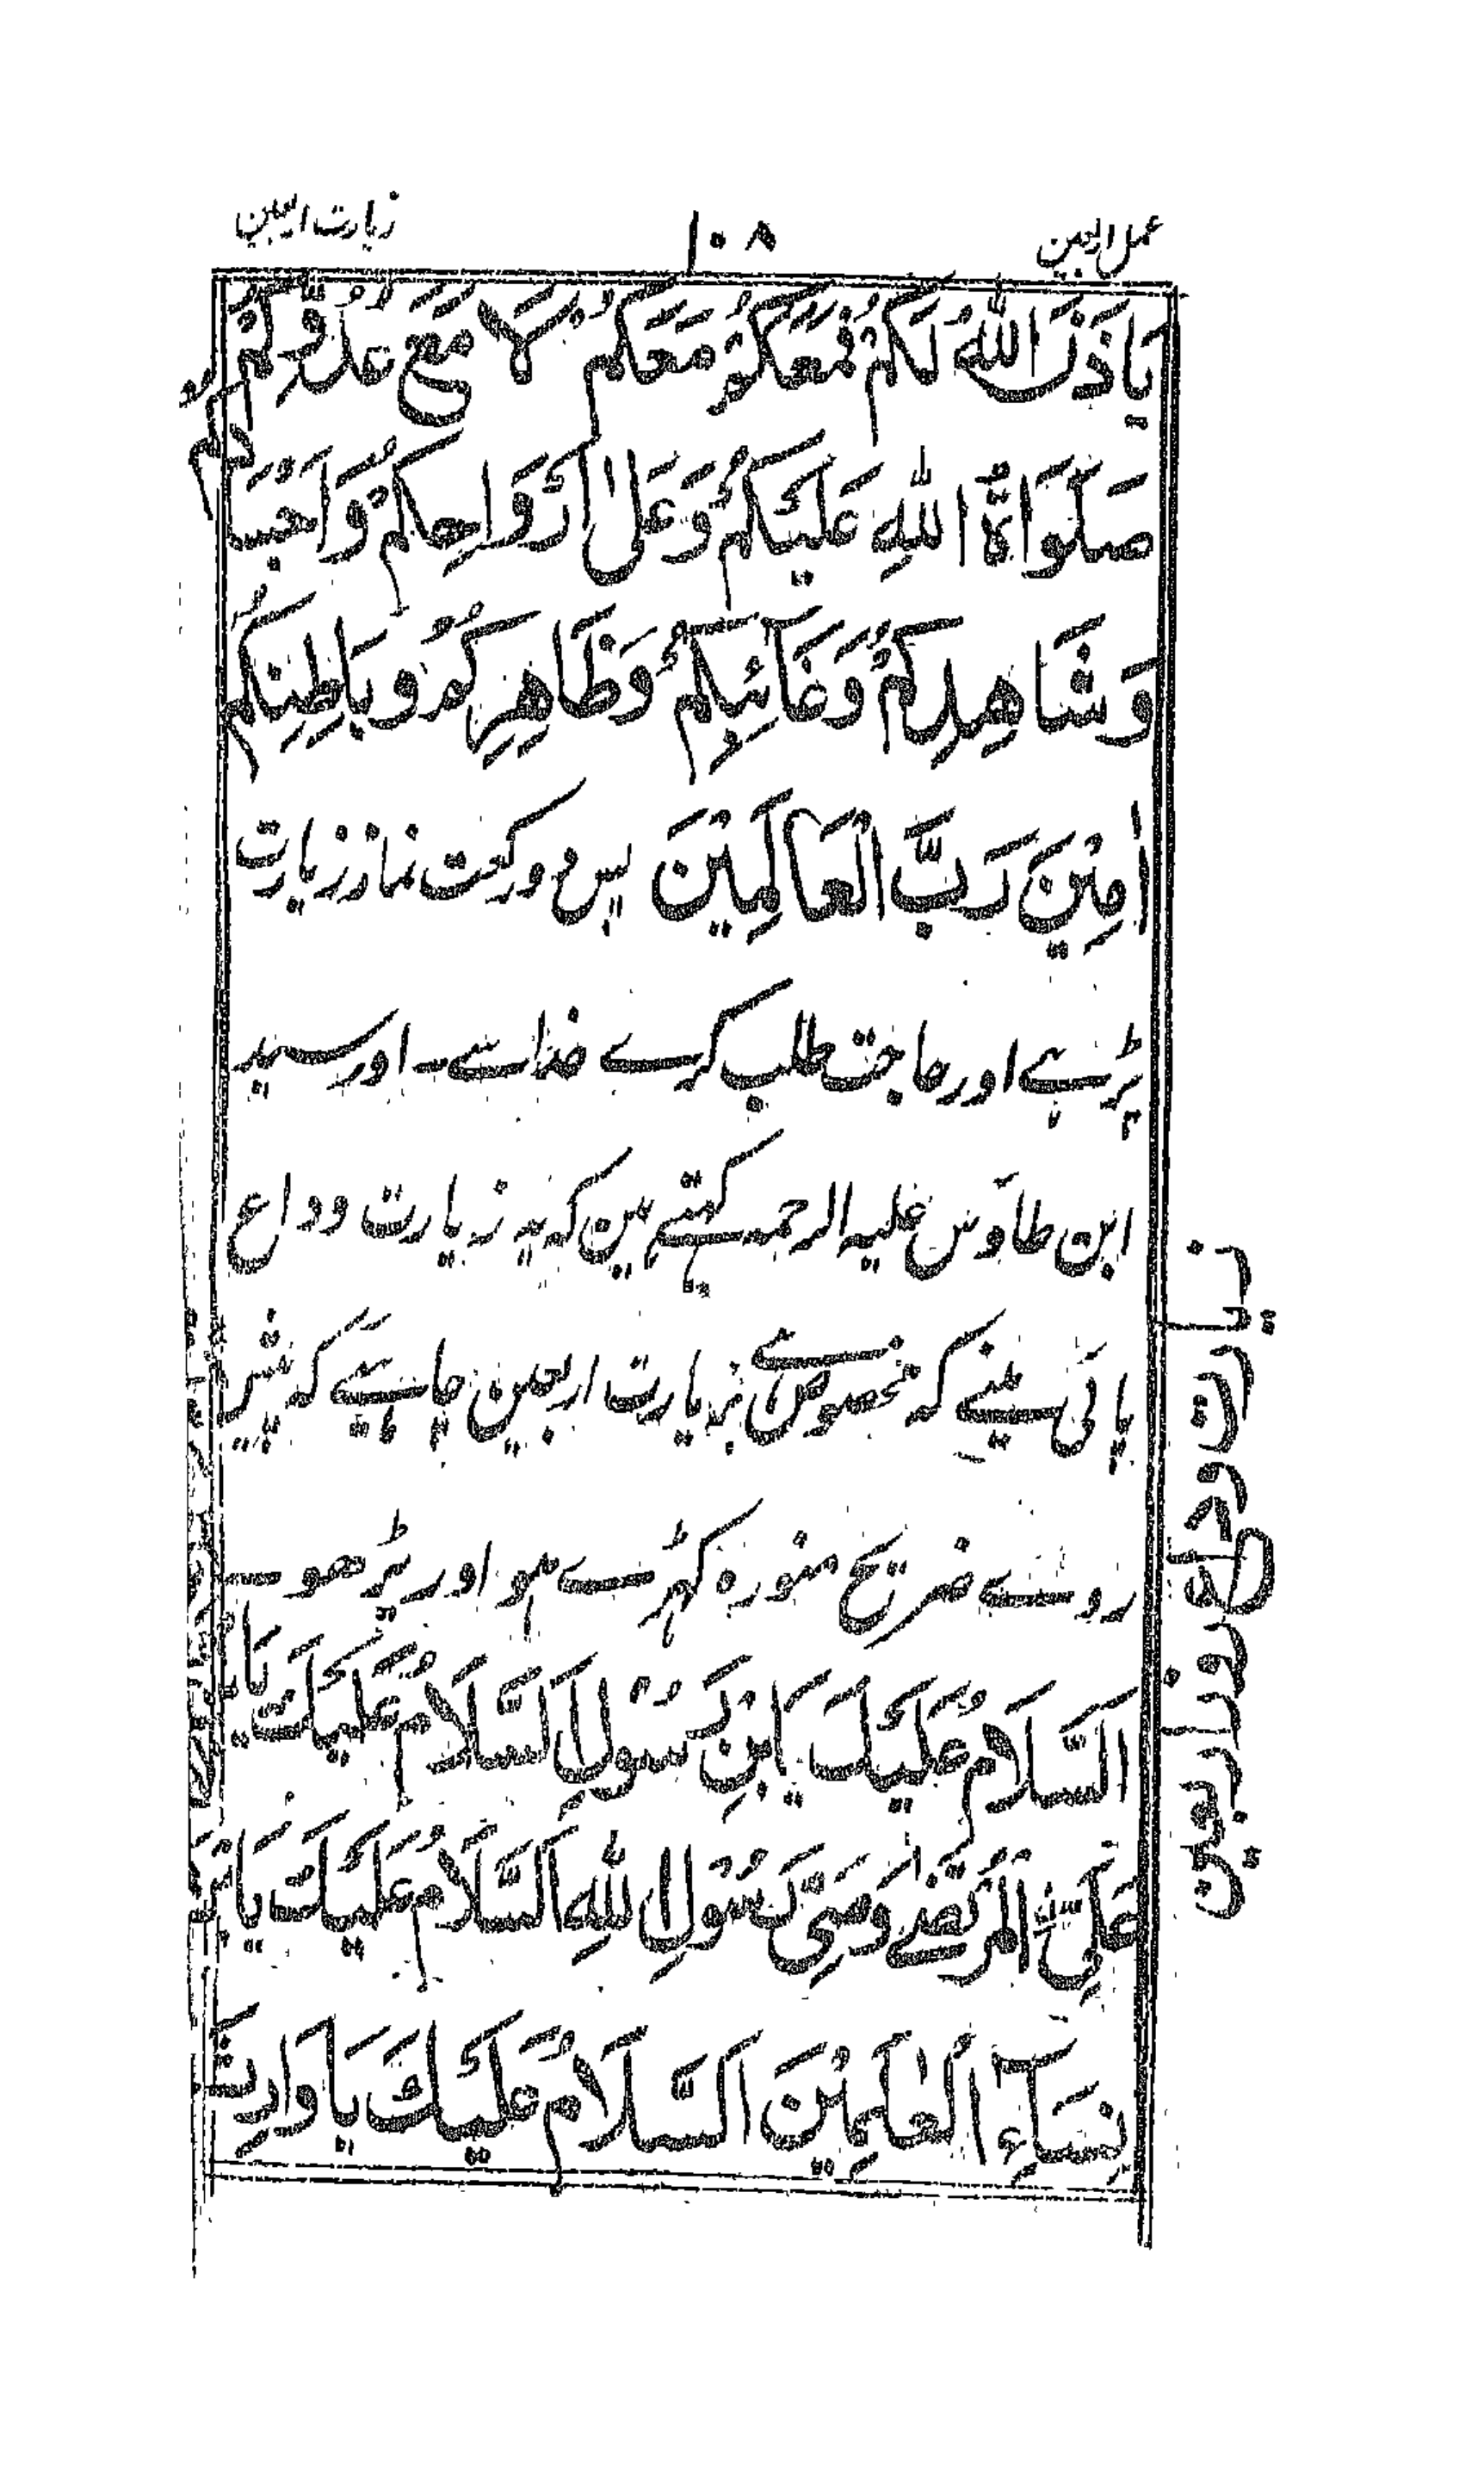 عمل اربعین ۱۰۸ زیارت اربعین
یَاذَنَ اللّٰهُ لَكُمْ فَمَعَكُمْ مَعَكُمْ لَا مَعَ عَدُوِّكُمْ
صَلَوَاةُ اللّٰهِ عَلَيْكُمْ وَعَلٰى اَرْوَاحِكُمْ وَاَجْسَادِكُمْ
وَشَاهِدِكُمْ وَغَائِبِكُمْ وَظَاهِرِكُمْ وَبَاطِنِكُمْ
اٰمِيْنَ رَبَّ الْعَالَمِيْنَ پس دو رکعت نماز زیارت
پڑہے اور حاجت طلب کرے خدا سے۔ اور سید
ابن طاؤس علیہ الرحمہ کہتے ہین کہ یہ زیارت وداع
پائی مینے کہ مخصوص ہے بزیارت اربعین چاہیے کہ پیش
روے ضریح منورہ کہڑے ہو اور پڑھو
اَلسَّلَامُ عَلَيْكَ يَابْنَ رَسُوْلِ اَلسَّلَامُ عَلَيْكَ يَابْنَ
عَلِيٍّ الْمُرْتَضٰے وَصِيِّ رَسُوْلِ اللّٰهِ اَلسَّلَامُ عَلَيْكَ يَابْنَ
نِسَآءِ الْعٰلَمِيْنَ اَلسَّلَامُ عَلَيْكَ يَا وَارِثَ
زیارت وداع روز اربعین